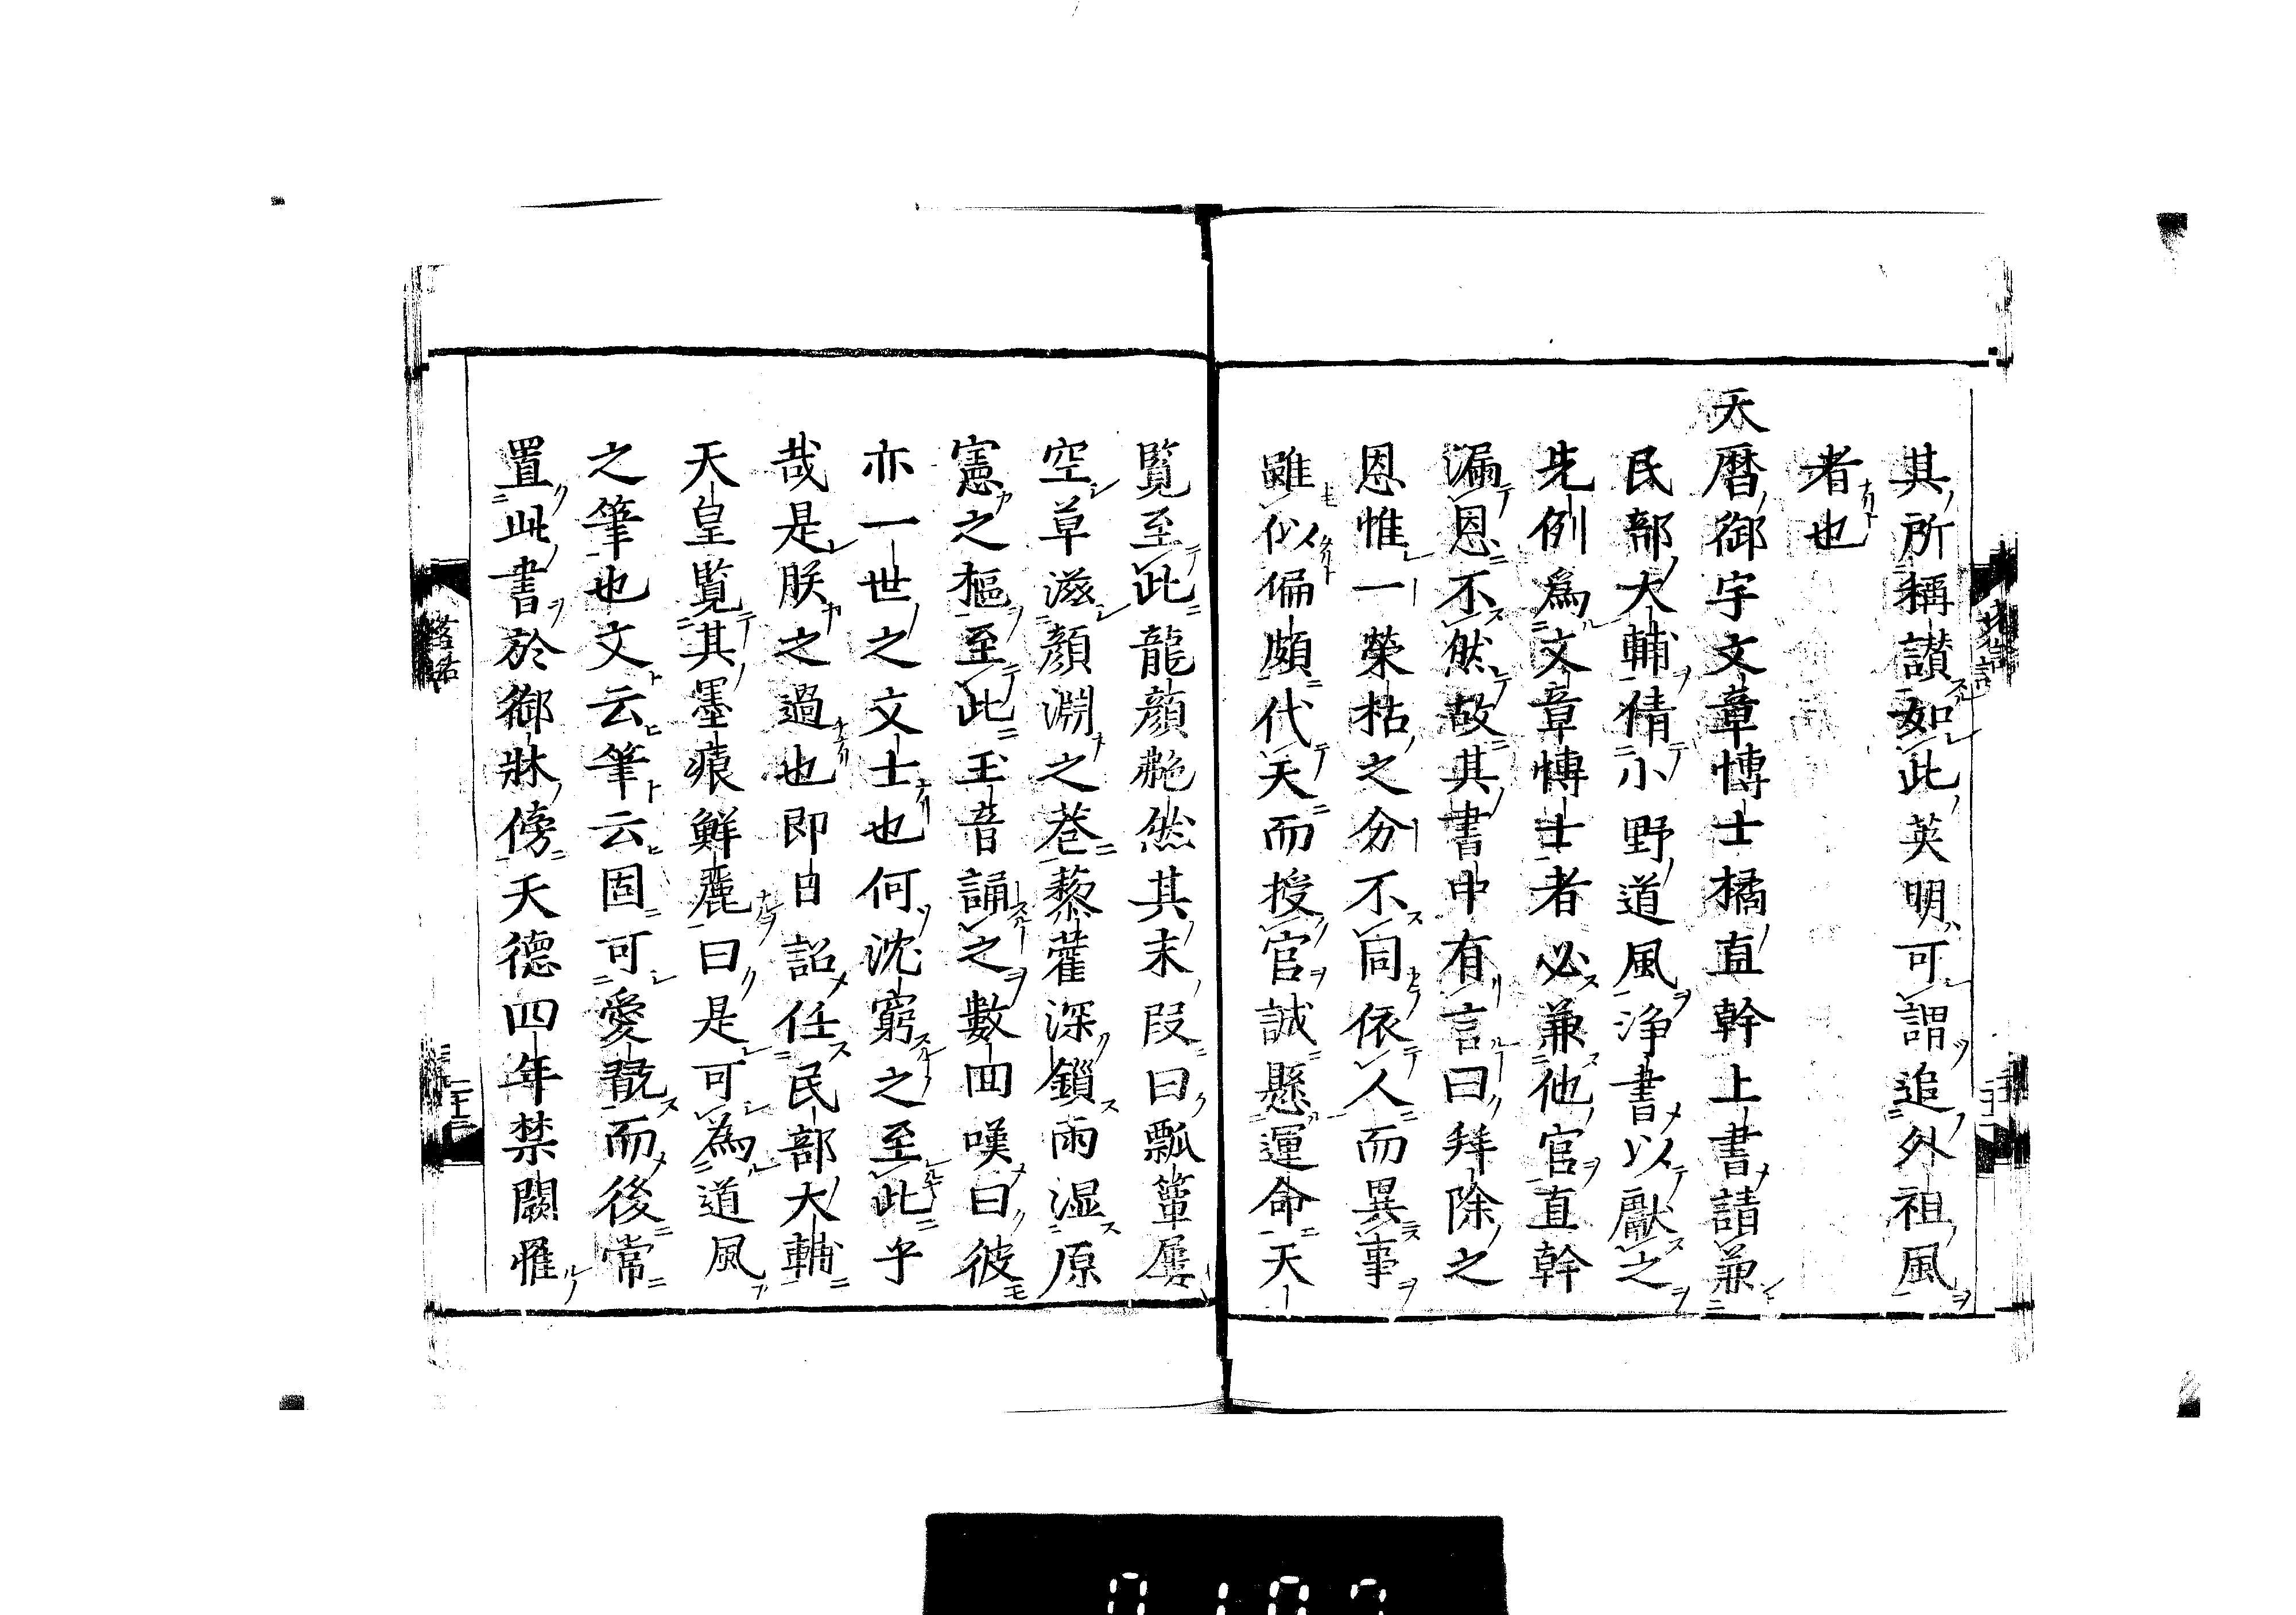 其所稱讃如此英明可謂追外祖風
者也
天暦御宇文章博士橘直幹上書請兼
民部大輔倩小野道風淨書以獻之
先例爲文章博士者必兼他官直幹
漏恩不然故其書中有言曰拜除之
恩惟一榮枯之分不同依人而異事
雖似偏頗代天而授官誠懸運命天
覧至此龍顔艴然其末段曰瓢簞屢
空草滋顔淵之巷藜藋深鎖雨湿原
憲之樞至此玉音誦之數囬嘆曰彼
亦一世之文士也何沈窮之至此乎
哉是朕之過也即日詔任民部大輔
天皇覧其墨痕鮮麗曰是可為道風
之筆也文云筆云固可愛翫而後常
置此書於御牀傍天德四年禁闕罹
二十三